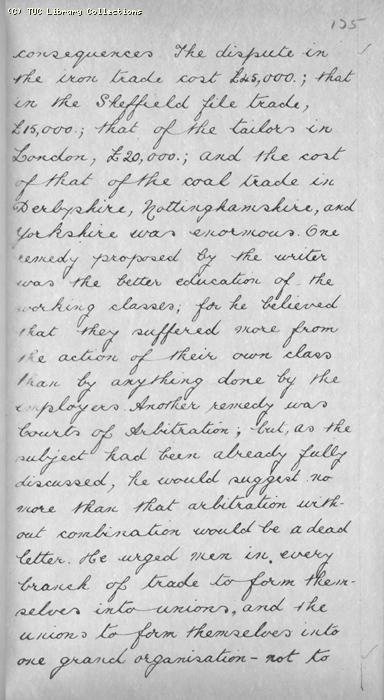 (C) TUC Library Collections
125
consequences The dispute in
the iron trade cost £45,000.; that
in the Sheffield file trade,
£15,000.; that of the tailors in
London, £20,000.; and the cost
of that of the coal trade in
Derbyshire, Nottinghamshire, and
Yorkshire was enormous. One
remedy proposed by the writer
was the better education of the
working classes; for he believed
that they suffered more from
the action of their own class
than by anything done by the
employers. Another remedy was
Courts of Arbitration; but, as the
subject had been already fully
discussed, he would suggest no
more than that arbitration with-
out combination would be a dead
letter. He urged men in every
branch of trade to form them-
selves into unions, and the
unions to form themselves into
one grand organisation - not to